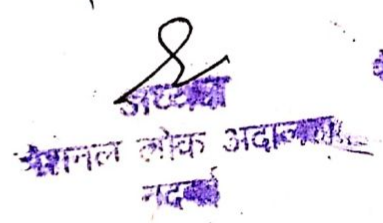 अध्यक्ष
नेशनल लोक अदालत